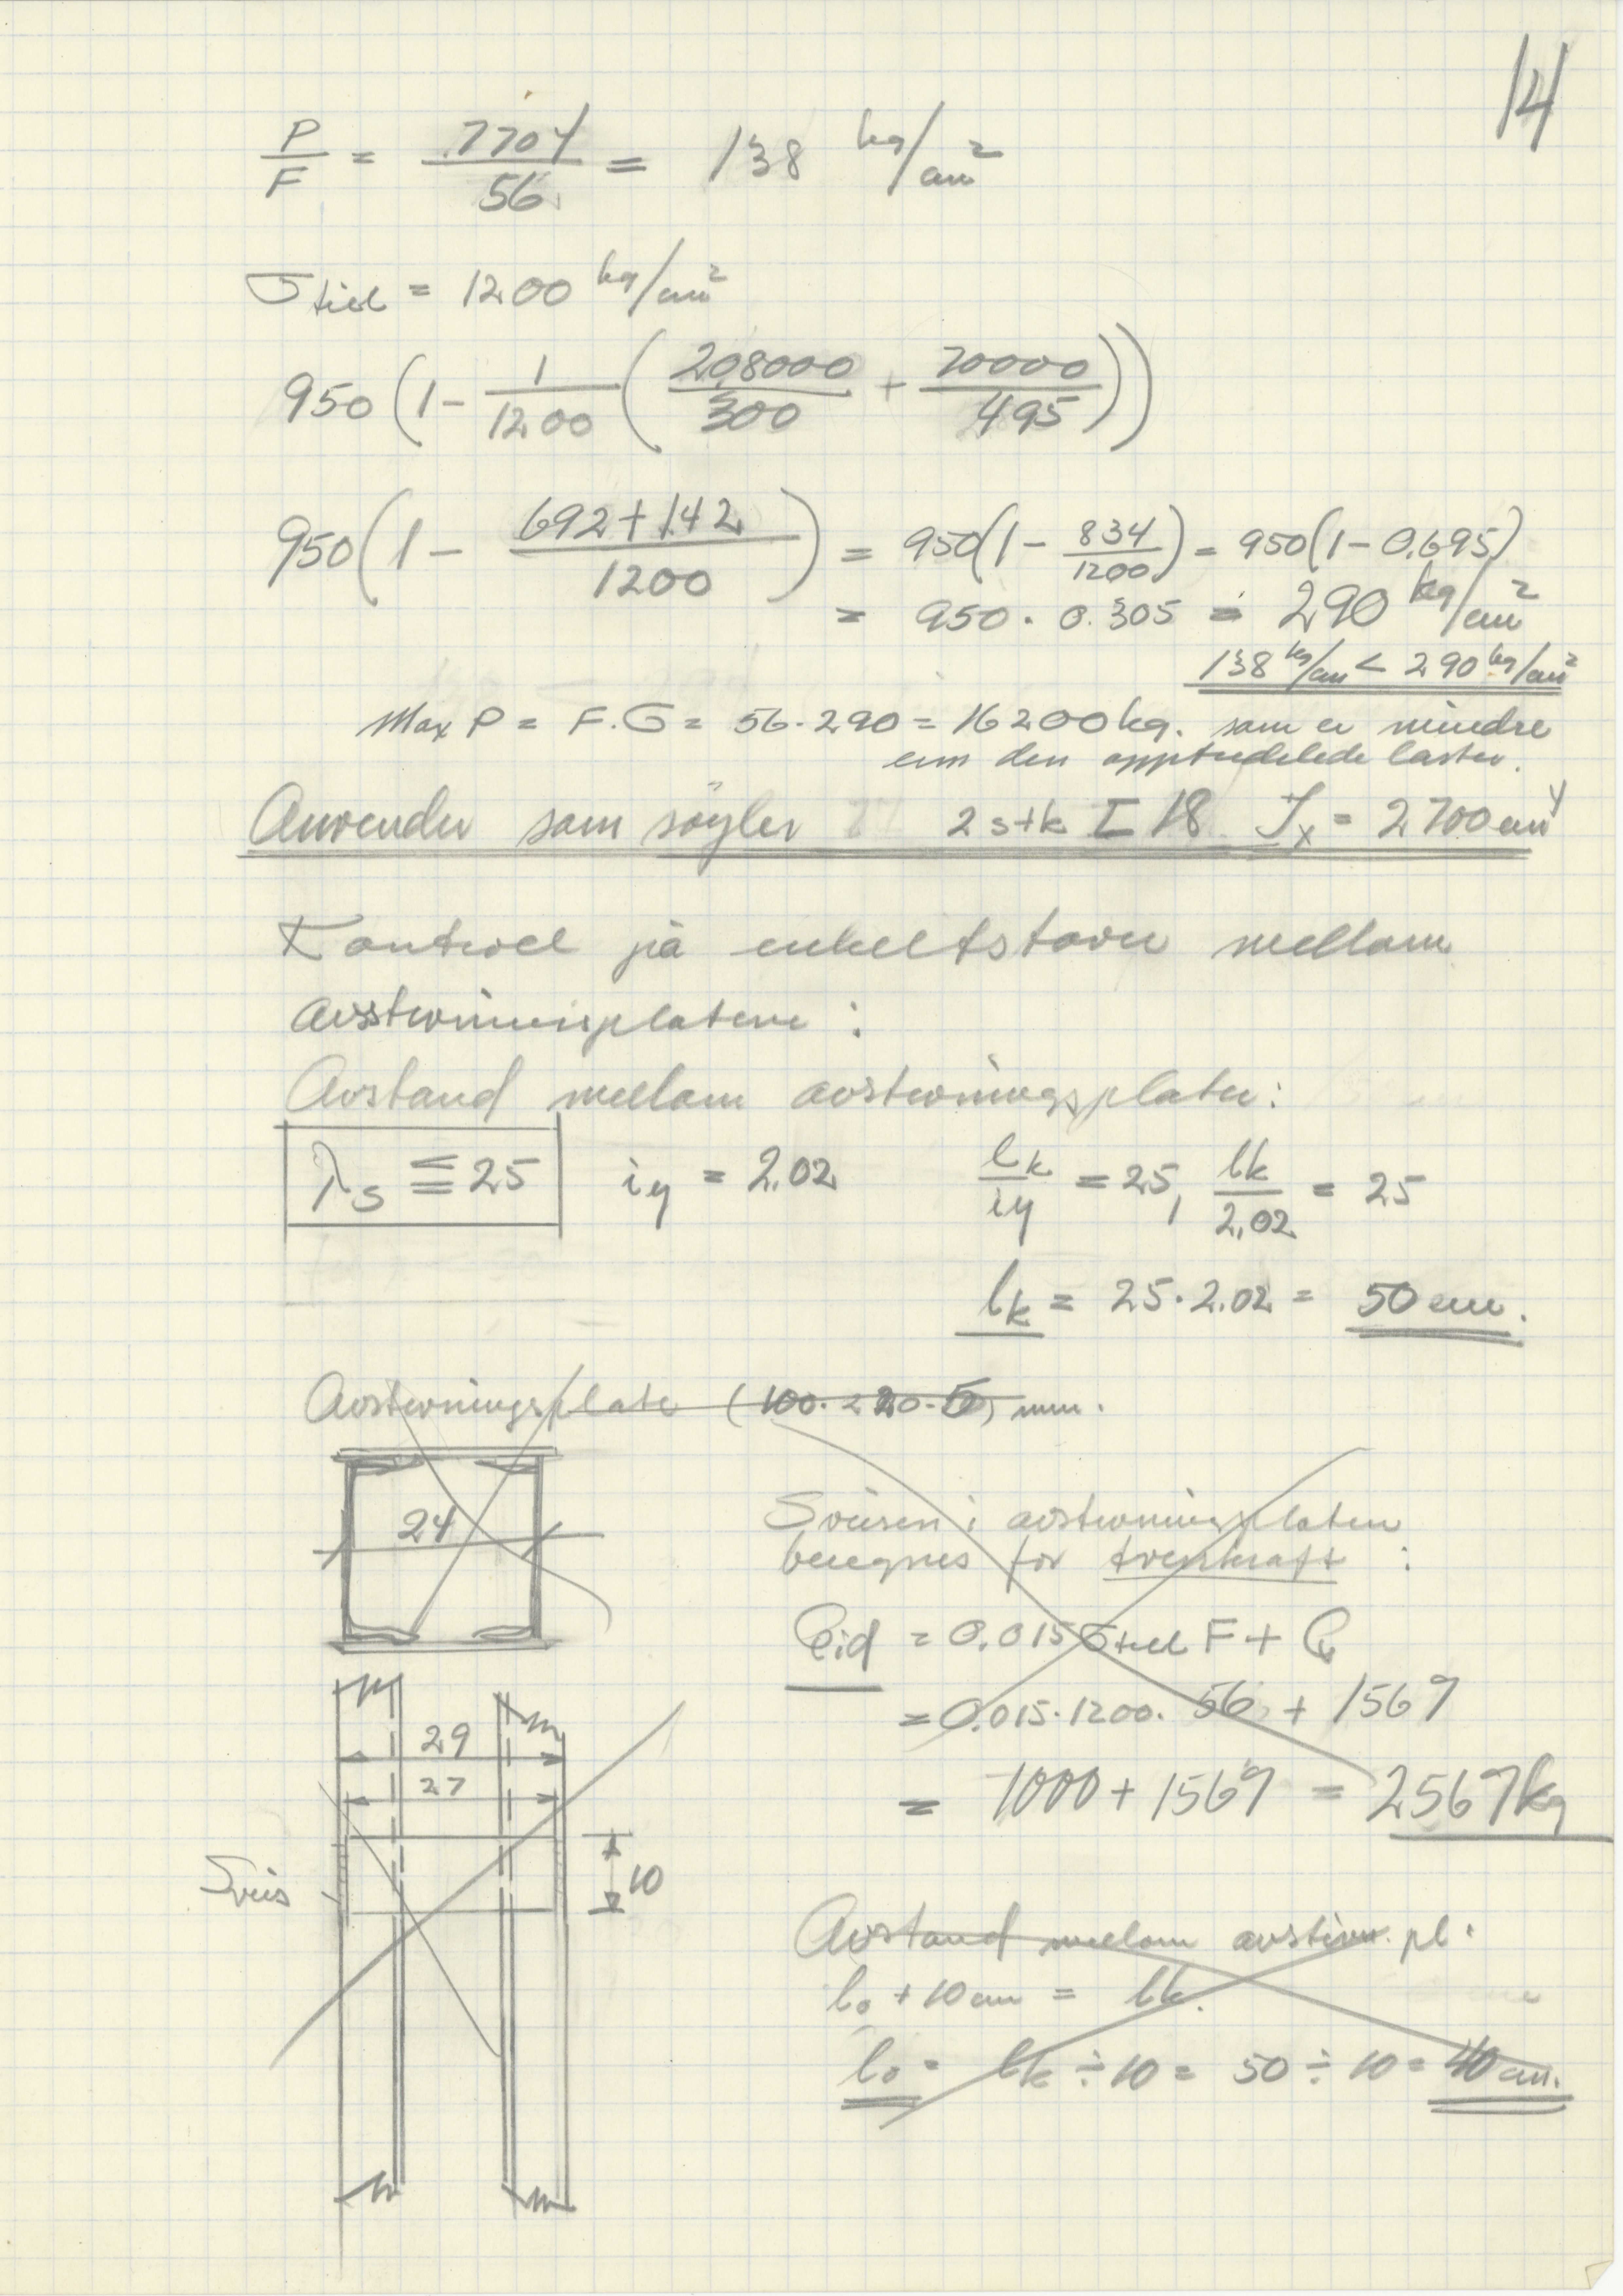 14
P/F = 7704/56 = 138 kg/cm²
σ till = 1200 kg/cm²
950 (1 - 1/1200 (208000/300 + 70000/495))
950 (1 - 692+142/1200) = 950(1 - 834/1200) = 950(1 - 0.695)
= 950 · 0.305 = 290 kg/cm²
138 kg/cm < 290 kg/cm²
Max P = F.σ = 56·290 = 16200 kg. som er mindre
enn den opptredelede laster.
Anvender som søyler 2 stk I 18 Jx = 2700 cm⁴
Kontroll på enkeltstaver mellom
avstivningsplatene :
Avstand mellom avstivningsplater:
λs ≦ 25 iy = 2.02 lk/iy = 25, lk/2,02 = 25
lk = 25·2.02 = 50 cm.
Avstivningsplate (100·220·5) mm.
24
Sveisen i avstivningsplaten
beregnes for tverrkraft :
Qid = 0.015 σ till F + Q
= 0.015·1200· 56 + 1567
29
27
= 1000 + 1567 = 2567 kg
Sveis
10
Avstand mellom avstivn. pl:
lo + 10 cm = lk.
lo = lk ÷ 10 = 50 ÷ 10 = 40 cm.